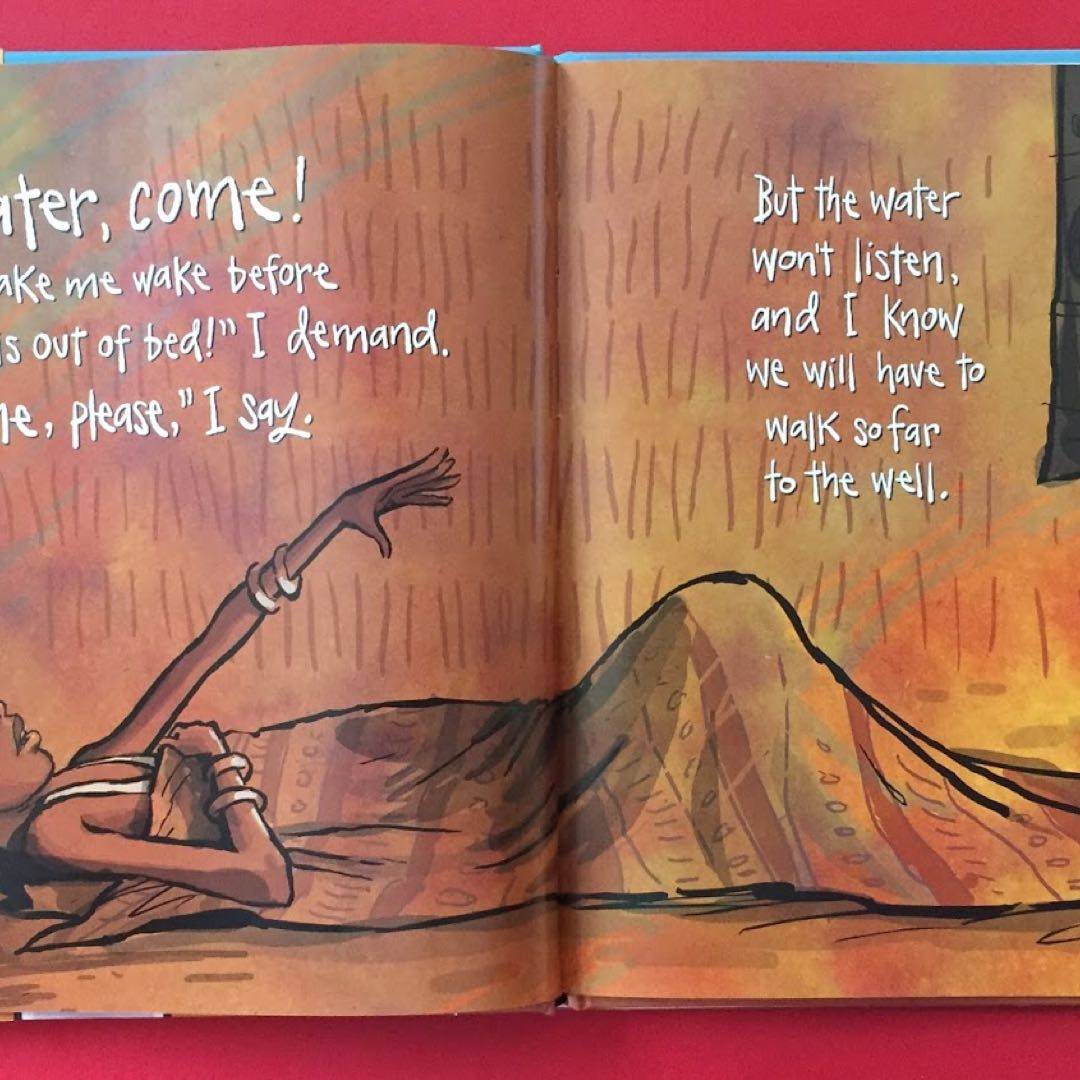 ater, come!
ake me wake before
s out of bed!" I demand.
please," I say.
But the water
won't listen,
and I know
we will have to
walk so far
to the well.